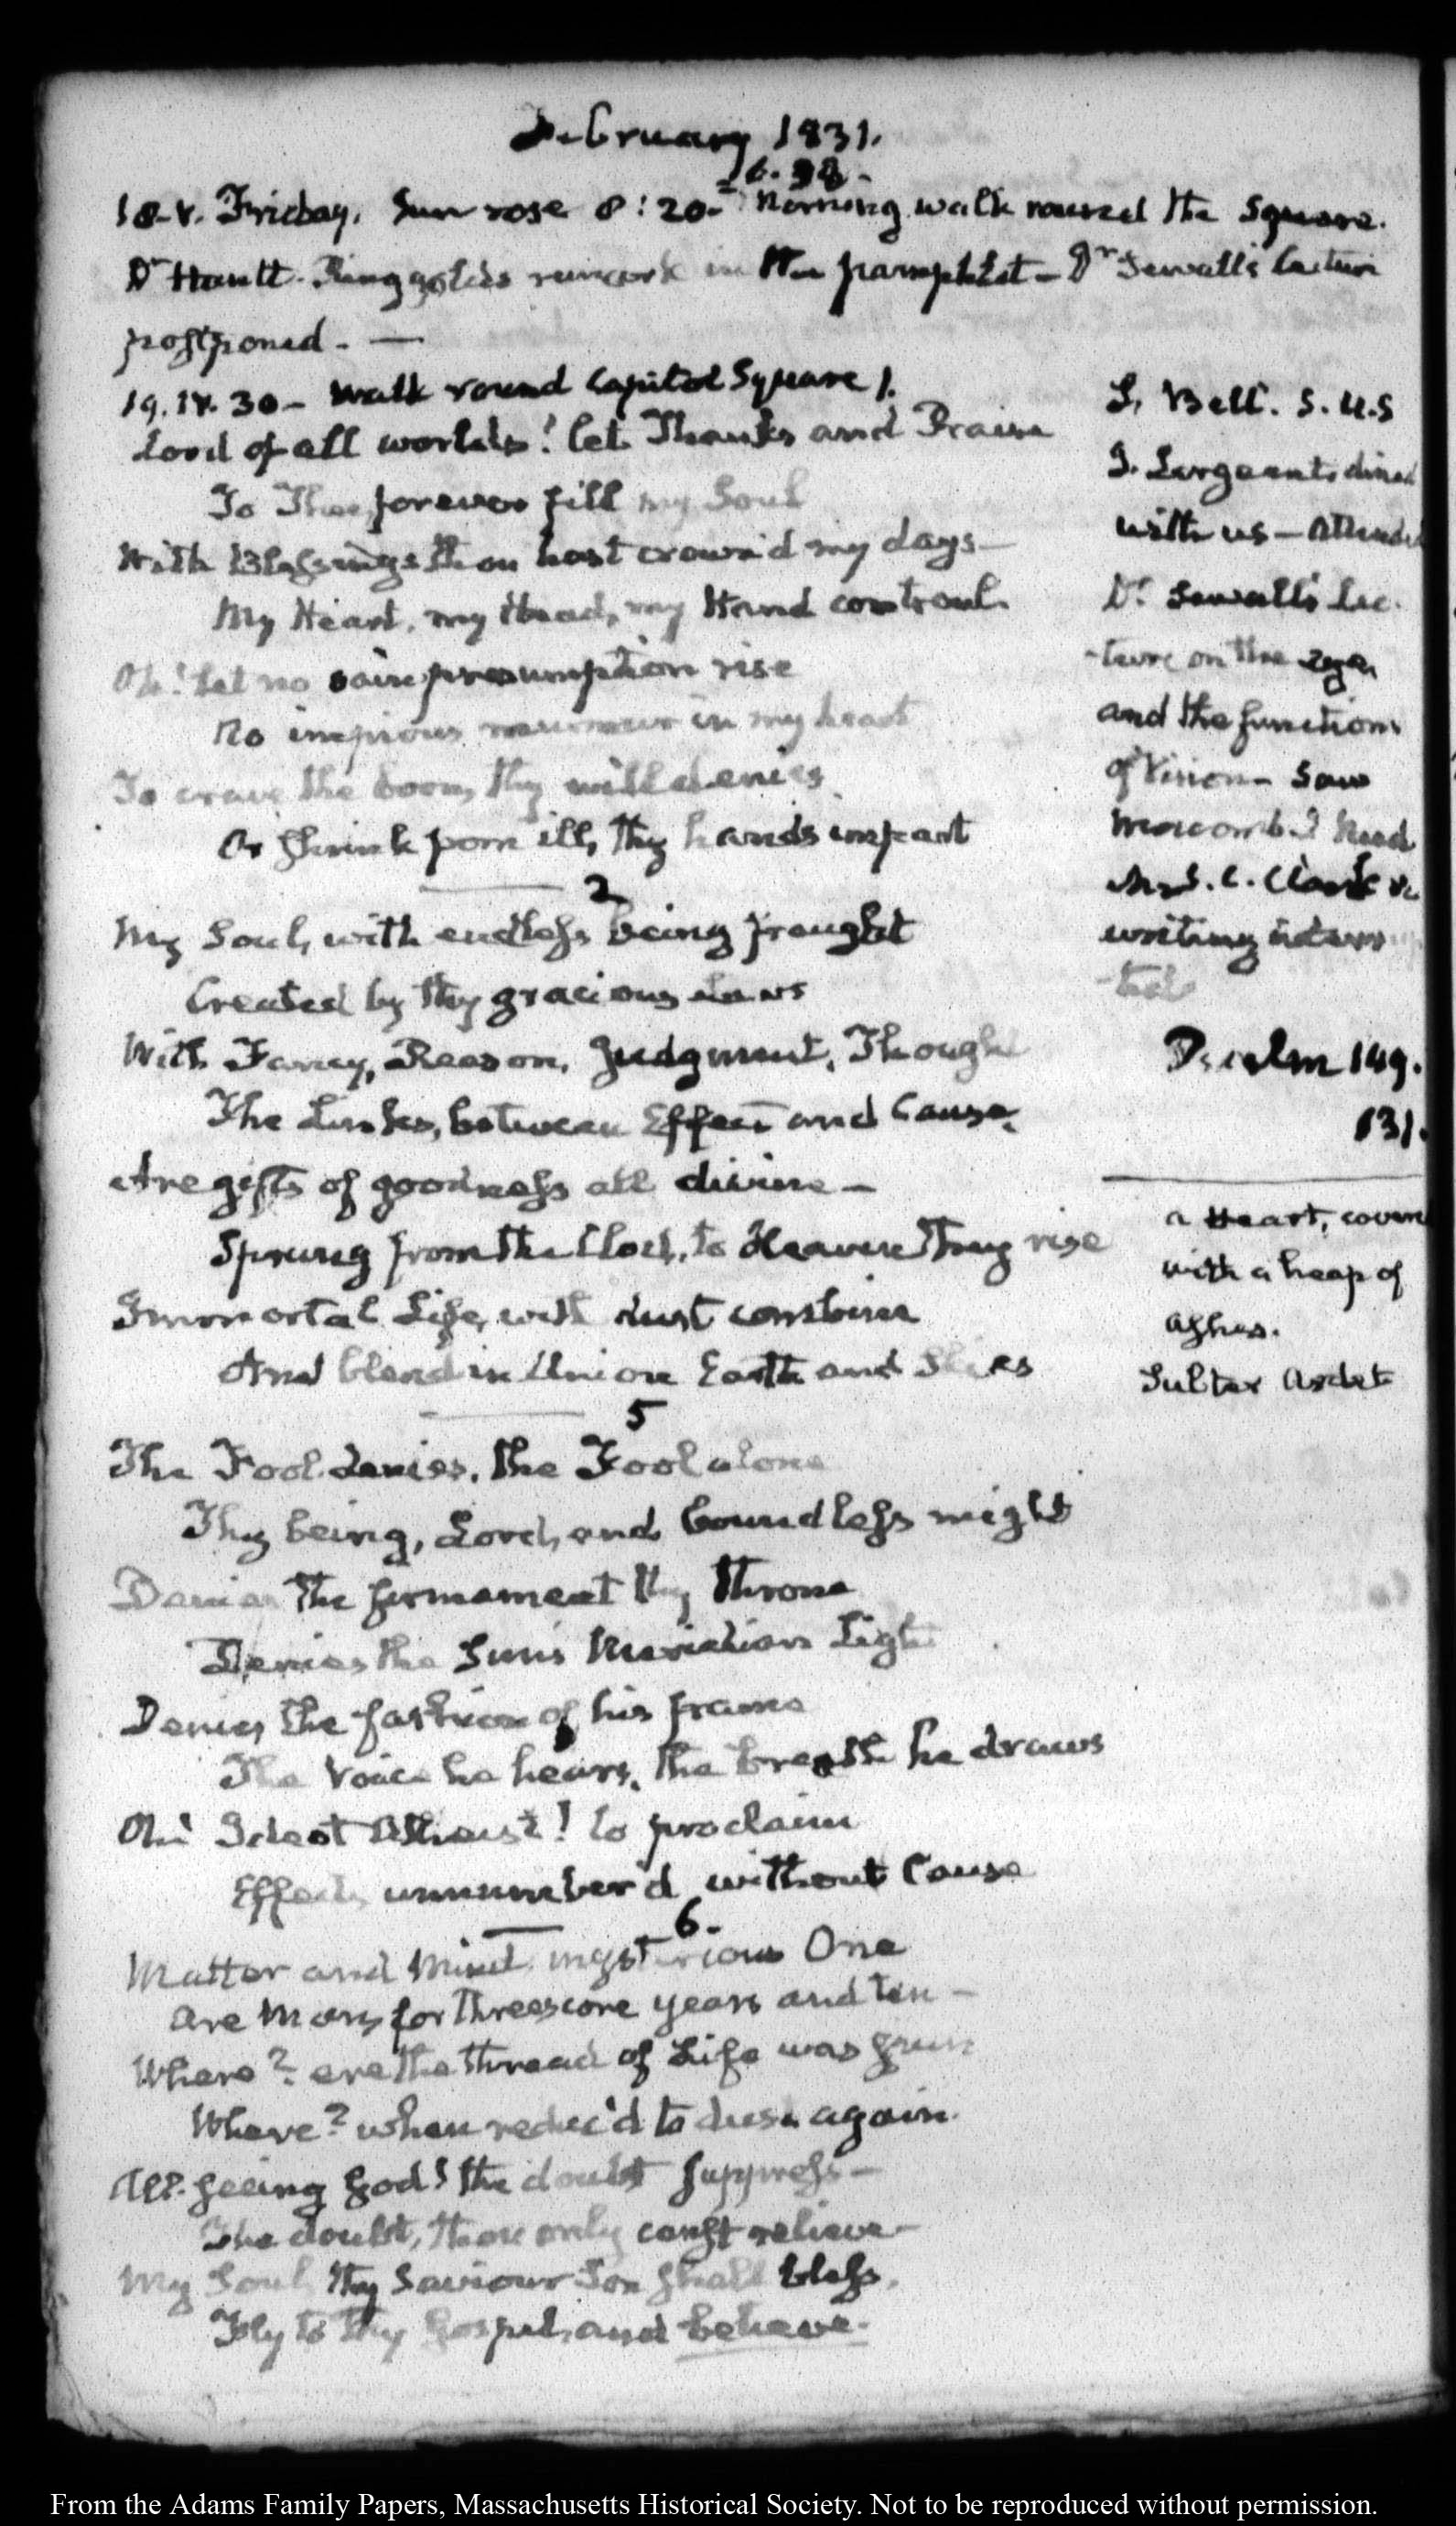 February 1831.
6. 38.
18. V. Friday. Sun rose 8:20. Morning walk round the Square.
Dr Huntt. Ringgolds remark in the pamphlet — Dr Sewall's Lecture
postponed. —
19. IV. 30 — Walk round Capitol Square 1.
Lord of all worlds! let Thanks and Praise
To Thee forever fill my Soul
With Blessings thou hast crown'd my days —
My Heart, my Head, my Hand controul.
Oh! let no vain presumption rise
No impious murmur in my heart
To crave the boon, thy will denies
Or shrink from ill, thy hands impart
2
My Soul, with endless being fraught
Created by thy gracious laws
With Fancy, Reason, Judgment, Thought
The Links, between Effect and Cause,
Are gifts of goodness all divine —
Sprung from the Clod, to Heaven They rise
Immortal Life, with dust combine
And blend in Union Earth and Skies
5
The Fool denies, the Fool alone
Thy being, Lord, and boundless might
Denies the firmament thy throne
Denies the Sun's Meridian Light
Denies the fashion of his frame
The Voice he hears, the breath he draws
Oh! Idiot Atheist! to proclaim
Effects unnumber'd without Cause
6.
Matter and Mind, mysterious One
Are Man, for threescore years and ten —
Where? ere the thread of Life was spun
Where? when reduc'd to dust again.
All-seeing God! the doubt suppress —
The doubt, thou only canst relieve —
My Soul, thy Saviour Son shall bless,
Fly to thy Gospel, and believe.
S. Bell. S.U.S
J. Sergeant dined
with us — Attended
Dr Sewall's Lec-
-ture on the eye
and the functions
of Vision — Saw
Macomb
Mrs. C. Clark
writing
Psalm 149.
131.
a Heart, cover
with a heap of
ashes.
Ardet
From the Adams Family Papers, Massachusetts Historical Society. Not to be reproduced without permission.